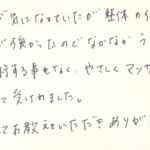 が気になっていたが整体の
が強かったのでなかなか
行する事もなく、やさしくマッサ
て受けれました。
てお教えいただきありが